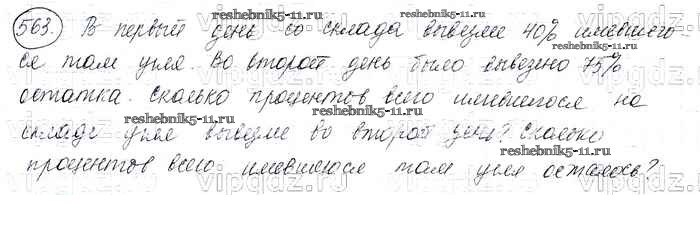 563. В первый день со склада вывезли 40% имевшего-
ся там угля. Во второй день было вывезено 75%
остатка. Сколько процентов всего имевшегося на
складе угля вывезли во второй день? Сколько
процентов всего имевшегося там угля осталось?
reshebnik5-11.ru
reshebnik5-11.ru
reshebnik5-11.ru
reshebnik5-11.ru
reshebnik5-11.ru
reshebnik5-11.ru
vipgdz.ru
vipgdz.ru
vipgdz.ru
vipgdz.ru
vipgdz.ru
vipgdz.ru